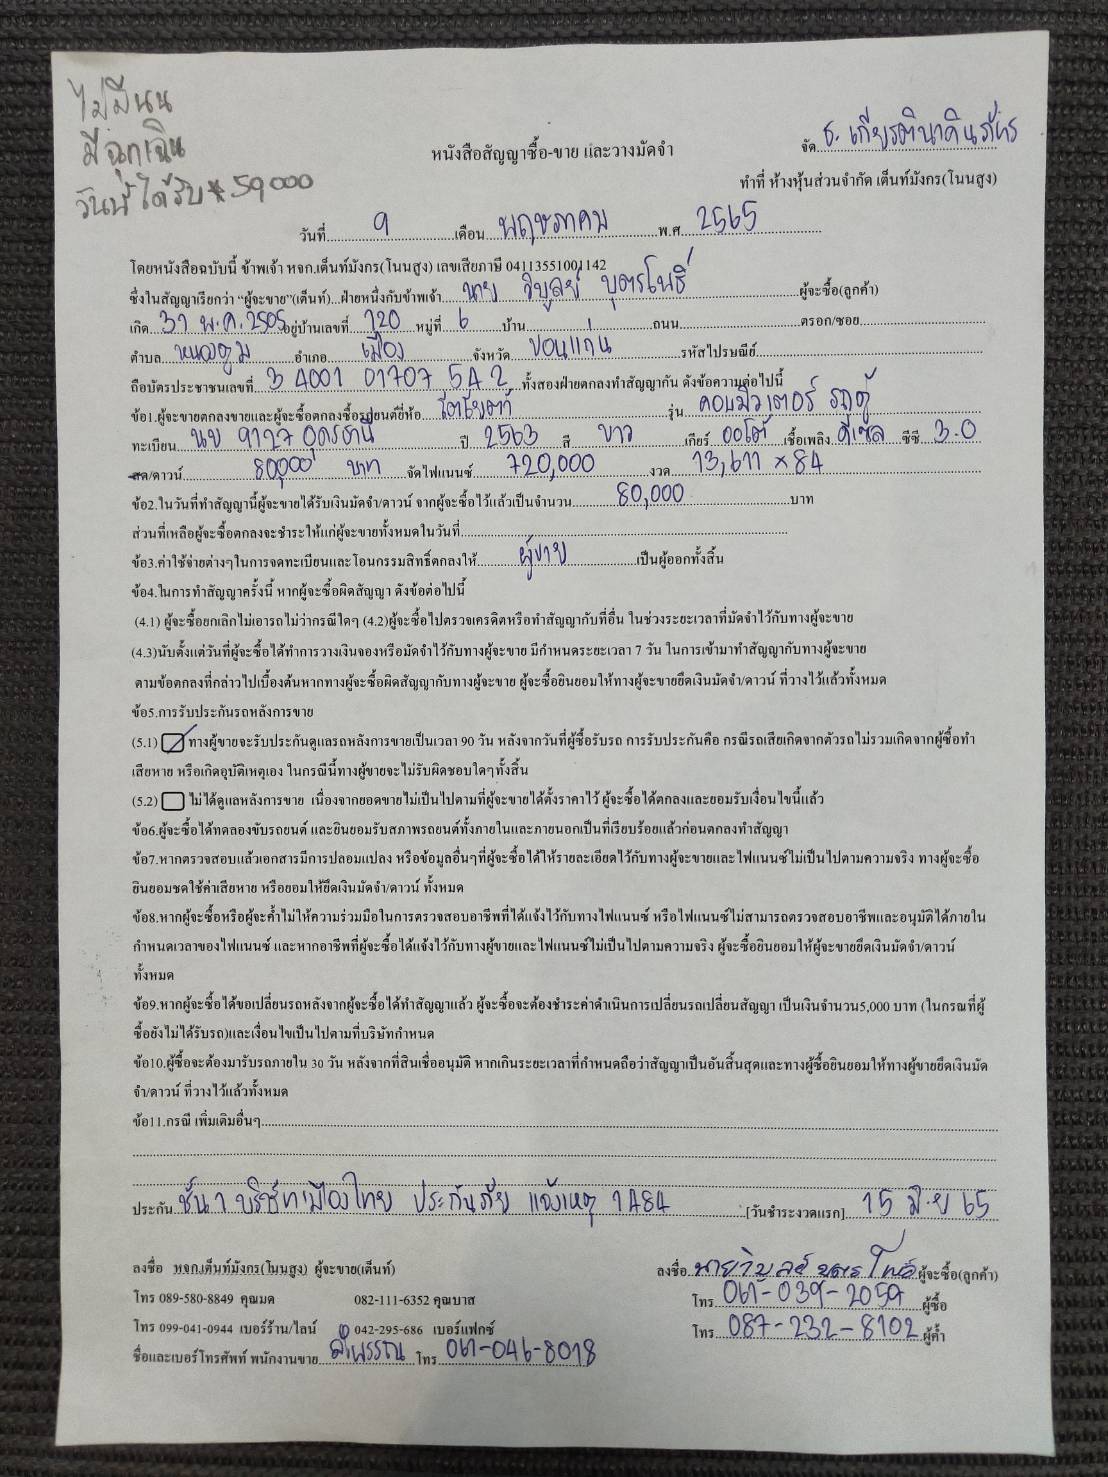 ไม่มีนน
มีฉุกเฉิน
วันนี้ได้รับ 59,000
จัด ธ. เกียรตินาคินภัทร
หนังสือสัญญาซื้อ-ขาย และวางมัดจำ
ทำที่ ห้างหุ้นส่วนจำกัด เต็นท์มังกร(โนนสูง)
วันที่ 9 เดือน พฤษภาคม พ.ศ. 2565
โดยหนังสือฉบับนี้ ข้าพเจ้า หจก.เต็นท์มังกร(โนนสูง) เลขเสียภาษี 04113551001142
ซึ่งในสัญญาเรียกว่า "ผู้จะขาย"(เต็นท์)...ฝ่ายหนึ่งกับข้าพเจ้า นาย วิบูลย์ บุตรโพธิ์ ผู้จะซื้อ(ลูกค้า)
เกิด 31 พ.ค. 2505 อยู่บ้านเลขที่ 120 หมู่ที่ 6 บ้าน - ถนน ตรอก/ซอย
ตำบล หนองตูม อำเภอ เมือง จังหวัด ขอนแก่น รหัสไปรษณีย์
ถือบัตรประชาชนเลขที่ 3 4001 01707 54 2 ทั้งสองฝ่ายตกลงทำสัญญากัน ดังข้อความต่อไปนี้
ข้อ1.ผู้จะขายตกลงขายและผู้จะซื้อตกลงซื้อรถยนต์ยี่ห้อ โตโยต้า รุ่น คอมมิวเตอร์ รถตู้
ทะเบียน นข 9127 อุดรธานี ปี 2563 สี ขาว เกียร์ ออโต้ เชื้อเพลิง ดีเซล ซีซี 3.0
สด/ดาวน์ 80,000 บาท จัดไฟแนนซ์ 720,000 งวด 13,611 × 84
ข้อ2.ในวันที่ทำสัญญานี้ผู้จะขายได้รับเงินมัดจำ/ดาวน์ จากผู้จะซื้อไว้แล้วเป็นจำนวน 80,000 บาท
ส่วนที่เหลือผู้จะซื้อตกลงจะชำระให้แก่ผู้จะขายทั้งหมดในวันที่
ข้อ3.ค่าใช้จ่ายต่างๆในการจดทะเบียนและโอนกรรมสิทธิ์ตกลงให้ ผู้ขาย เป็นผู้ออกทั้งสิ้น
ข้อ4.ในการทำสัญญาครั้งนี้ หากผู้จะซื้อผิดสัญญา ดังข้อต่อไปนี้
(4.1) ผู้จะซื้อยกเลิกไม่เอารถไม่ว่ากรณีใดๆ (4.2)ผู้จะซื้อไปตรวจเครดิตหรือทำสัญญากับที่อื่น ในช่วงระยะเวลาที่มัดจำไว้กับทางผู้จะขาย
(4.3)นับตั้งแต่วันที่ผู้จะซื้อได้ทำการวางเงินจองหรือมัดจำไว้กับทางผู้จะขาย มีกำหนดระยะเวลา 7 วัน ในการเข้ามาทำสัญญากับทางผู้จะขาย
ตามข้อตกลงที่กล่าวไปเบื้องต้นหากทางผู้จะซื้อผิดสัญญากับทางผู้จะขาย ผู้จะซื้อยินยอมให้ทางผู้จะขายยึดเงินมัดจำ/ดาวน์ ที่วางไว้แล้วทั้งหมด
ข้อ5.การรับประกันรถหลังการขาย
(5.1) ทางผู้ขายจะรับประกันดูแลรถหลังการขายเป็นเวลา 90 วัน หลังจากวันที่ผู้ซื้อรับรถ การรับประกันคือ กรณีรถเสียเกิดจากตัวรถไม่รวมเกิดจากผู้ซื้อทำ
เสียหาย หรือเกิดอุบัติเหตุเอง ในกรณีนี้ทางผู้ขายจะไม่รับผิดชอบใดๆทั้งสิ้น
(5.2) ไม่ได้ดูแลหลังการขาย เนื่องจากยอดขายไม่เป็นไปตามที่ผู้จะขายได้ตั้งราคาไว้ ผู้จะซื้อได้ตกลงและยอมรับเงื่อนไขนี้แล้ว
ข้อ6.ผู้จะซื้อได้ทดลองขับรถยนต์ และยินยอมรับสภาพรถยนต์ทั้งภายในและภายนอกเป็นที่เรียบร้อยแล้วก่อนตกลงทำสัญญา
ข้อ7.หากตรวจสอบแล้วเอกสารมีการปลอมแปลง หรือข้อมูลอื่นๆที่ผู้จะซื้อได้ให้รายละเอียดไว้กับทางผู้จะขายและไฟแนนซ์ไม่เป็นไปตามความจริง ทางผู้จะซื้อ
ยินยอมชดใช้ค่าเสียหาย หรือยอมให้ยึดเงินมัดจำ/ดาวน์ ทั้งหมด
ข้อ8.หากผู้จะซื้อหรือผู้จะค้ำไม่ให้ความร่วมมือในการตรวจสอบอาชีพที่ได้แจ้งไว้กับทางไฟแนนซ์ หรือไฟแนนซ์ไม่สามารถตรวจสอบอาชีพและอนุมัติได้ภายใน
กำหนดเวลาของไฟแนนซ์ และหากอาชีพที่ผู้จะซื้อได้แจ้งไว้กับทางผู้ขายและไฟแนนซ์ไม่เป็นไปตามความจริง ผู้จะซื้อยินยอมให้ผู้จะขายยึดเงินมัดจำ/ดาวน์
ทั้งหมด
ข้อ9.หากผู้จะซื้อได้ขอเปลี่ยนรถหลังจากผู้จะซื้อได้ทำสัญญาแล้ว ผู้จะซื้อจะต้องชำระค่าดำเนินการเปลี่ยนรถเปลี่ยนสัญญา เป็นเงินจำนวน5,000 บาท (ในกรณที่ผู้
ซื้อยังไม่ได้รับรถ)และเงื่อนไขเป็นไปตามที่บริษัทกำหนด
ข้อ10.ผู้ซื้อจะต้องมารับรถภายใน 30 วัน หลังจากที่สินเชื่ออนุมัติ หากเกินระยะเวลาที่กำหนดถือว่าสัญญาเป็นอันสิ้นสุดและทางผู้ซื้อยินยอมให้ทางผู้ขายยึดเงินมัด
จำ/ดาวน์ ที่วางไว้แล้วทั้งหมด
ข้อ11.กรณี เพิ่มเติมอื่นๆ
ประกัน ชั้น 1 บริษัทเมืองไทย ประกันภัย แจ้งเหตุ 1484 [วันชำระงวดแรก] 15 มิ.ย 65
ลงชื่อ หจก.เต็นท์มังกร(โนนสูง) ผู้จะขาย(เต็นท์) ลงชื่อ นายวิบูลย์ บุตรโพธิ์ ผู้จะซื้อ(ลูกค้า)
โทร 089-580-8849 คุณมด 082-111-6352 คุณบาส โทร 061-039-2059 ผู้ซื้อ
โทร 099-041-0944 เบอร์ร้าน/ไลน์ 042-295-686 เบอร์แฟกซ์ โทร 087-232-8102 ผู้ค้ำ
ชื่อและเบอร์โทรศัพท์ พนักงานขาย โทร 061-046-8018